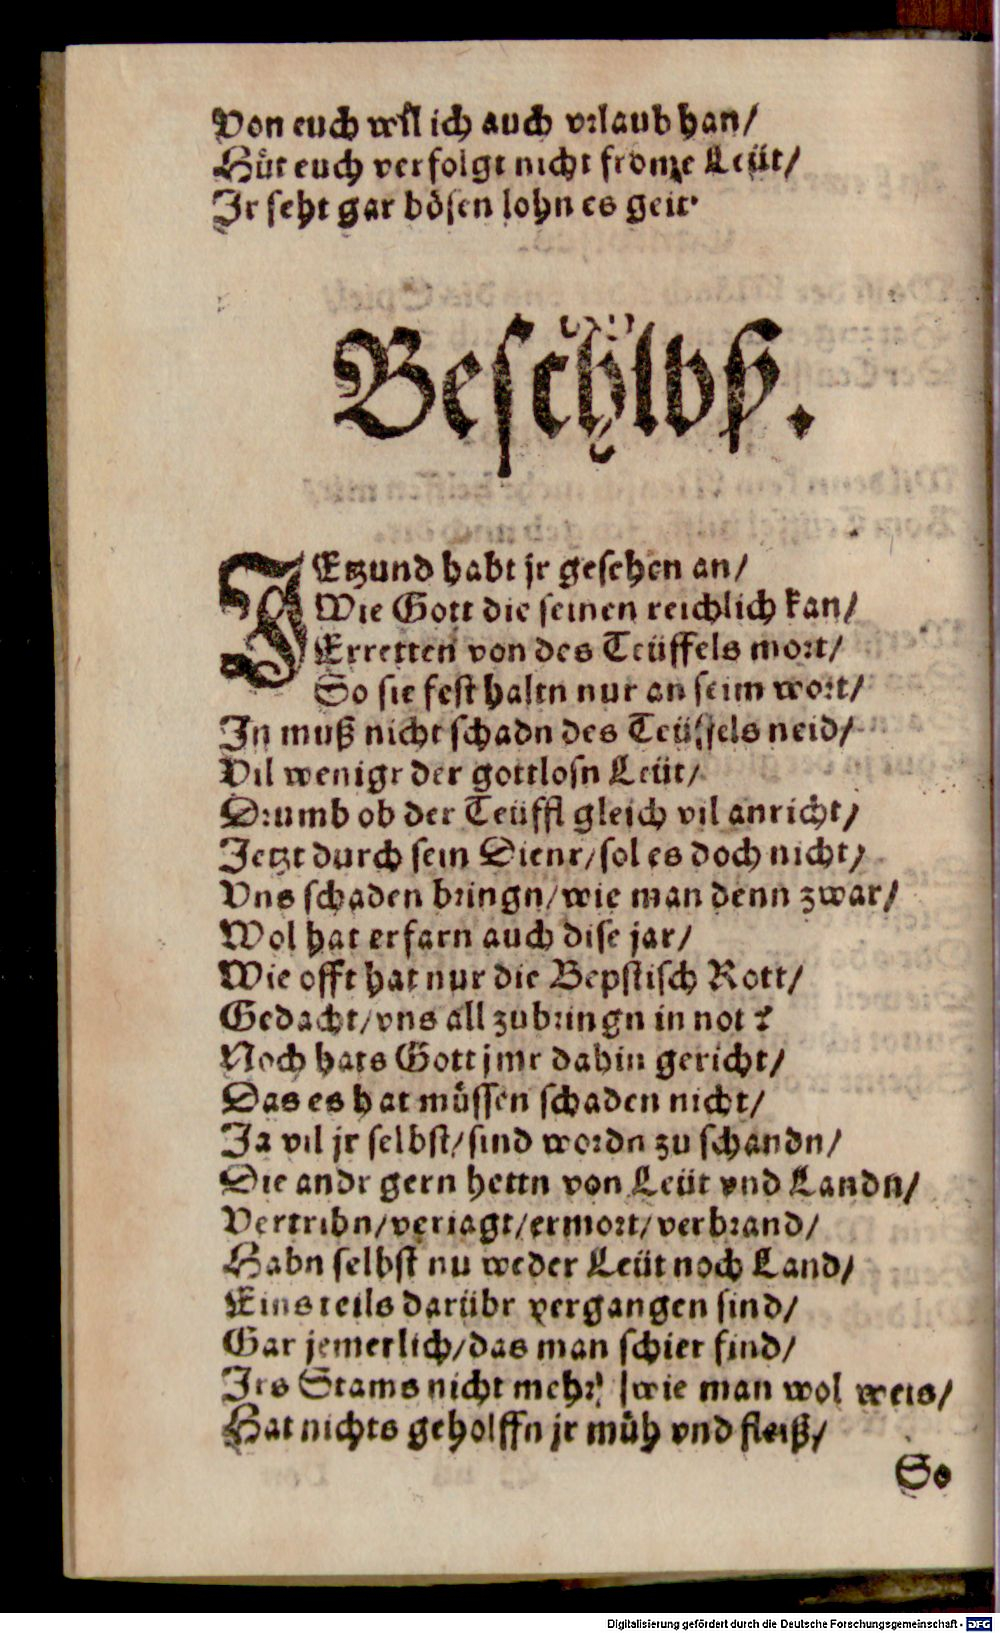 Von euch wil ich auch vrlaub han/
Hüt euch verfolgt nicht frome Leüt/
Jr seht gar bösen lohn es geit.
Beschlvß.
JEtzund habt jr gesehen an/
Wie Gott die seinen reichlich kan/
Erretten von des Teüffels mort/
So sie fest haltn nur an seim wort/
Jn muß nicht schadn des Teüffels neid/
Vil wenigr der gottlosn Leüt/
Drumb ob der Teüffl gleich vil anricht/
Jetzt durch sein Dienr/sol es doch nicht/
Vns schaden bringn/wie man denn zwar/
Wol hat erfarn auch dise jar/
Wie offt hat nur die Bepstisch Rott/
Gedacht/vns all zubringn in not?
Noch hats Gott jmr dahin gericht/
Das es hat müssen schaden nicht/
Ja vil jr selbst/sind wordn zu schandn/
Die andr gern hettn von Leüt vnd Landn/
Vertribn/veriagt/ermort/verbrand/
Habn selbst nu weder Leüt noch Land/
Eins teils darübr vergangen sind/
Gar jemerlich/das man schier find/
Jrs Stams nicht mehr/ wie man wol weis/
Hat nichts geholffn jr müh vnd fleiß/
So
Digitalisierung gefördert durch die Deutsche Forschungsgemeinschaft - DFG